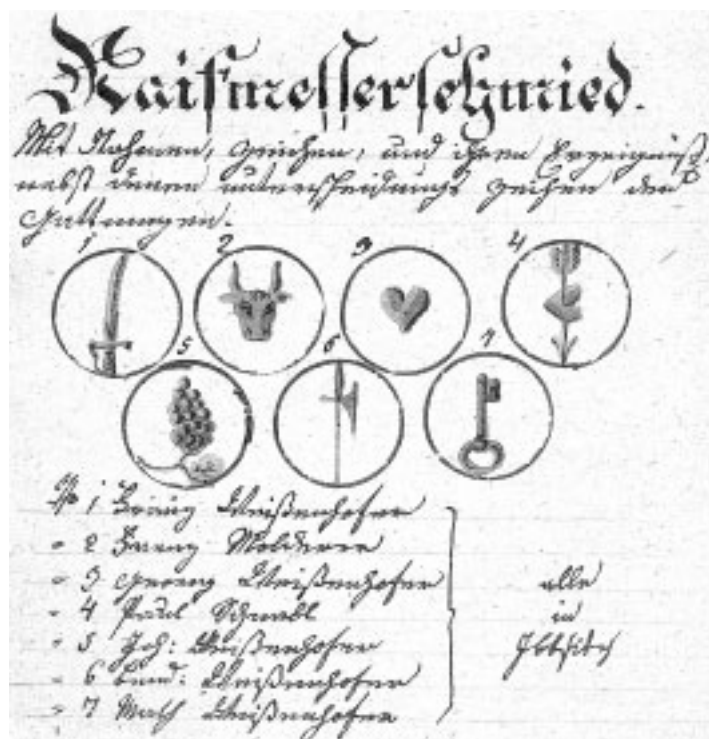 Raifmesserschmied.
Mit Nahmen, Zeichen, und ihren Erzeigniß,
nebst denen unterscheidungs Zeichen der
Gattungen.
1 2 3 4
5 6 7
No 1 Franz Weißenhofer
" 2 Franz
" 3 Georg Weißenhofer
" 4 Paul Schnabl
" 5 Joh: Weißenhofer
" 6 Weißenhofer
" 7 Math Weißenhofer
alle
in
Ybbsitz